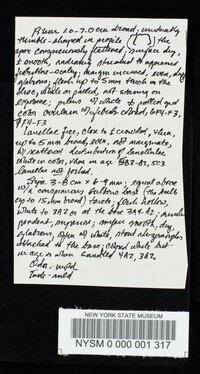 Pileus 1.0-7.0 cm broad, unusually
thimble-shaped in profile [ ] the
apex conspicuously flattened, surface dry,
± smooth, radiately streaked to appressed
fibrillose-scaly; margin incurved, even,
glabrous; flesh up to 5 mm thick in the
disc, white or pallid, not staining on
exposure; pileus of white ± pallid and
color
5F4-F3
Lamellae free, close to ± crowded, when,
up to 5 mm broad, even, not marginate,
distribution of lamellulae
white in color, when in age 5B3-B2, 5C3
Lamellae not forked.
Stipe 3-8 cm x 6-9 mm, equal above
w/ a conspicuous bulbous base (the bulb
up to 15 mm broad); terete; flesh hollow,
white to 3A2 or at the base 3A4-A2; annulus
pendant, surface smooth, dry,
glabrous, often of white,
attached to the base; white but
in age or when handled 4A2, 3A2.
Odor - mild
Taste - mild
NEW YORK STATE MUSEUM
NYSM 0 000 001 317